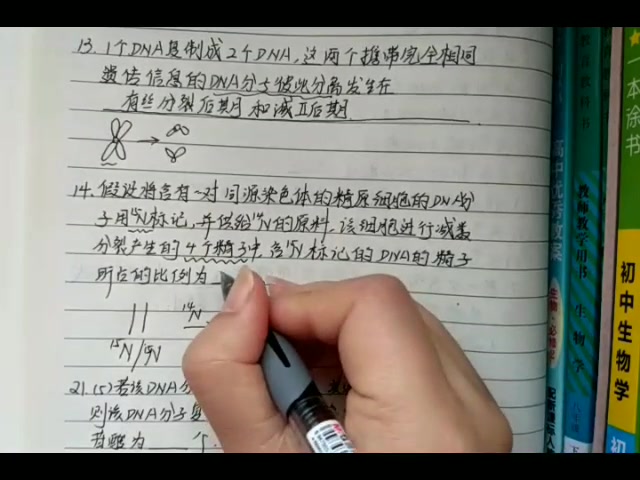 13. 1个DNA复制成2个DNA,这两个携带完全相同
遗传信息的DNA分子彼此分离发生在
有丝分裂后期和减Ⅱ后期
14. 假设将含有一对同源染色体的精原细胞的DNA分
子用¹⁵N标记,并供给¹⁴N的原料,该细胞进行减数
分裂产生的4个精子中,含¹⁵N标记的DNA的精子
所占的比例为
¹⁴N
¹⁵N/¹⁵N
21. (5)若该DNA分
则该DNA分子复
苷酸为 个.
高中优秀教案
生物·必修
配
教师教学用书
生物学
八年级
下
初中生物学
初中
一本涂书